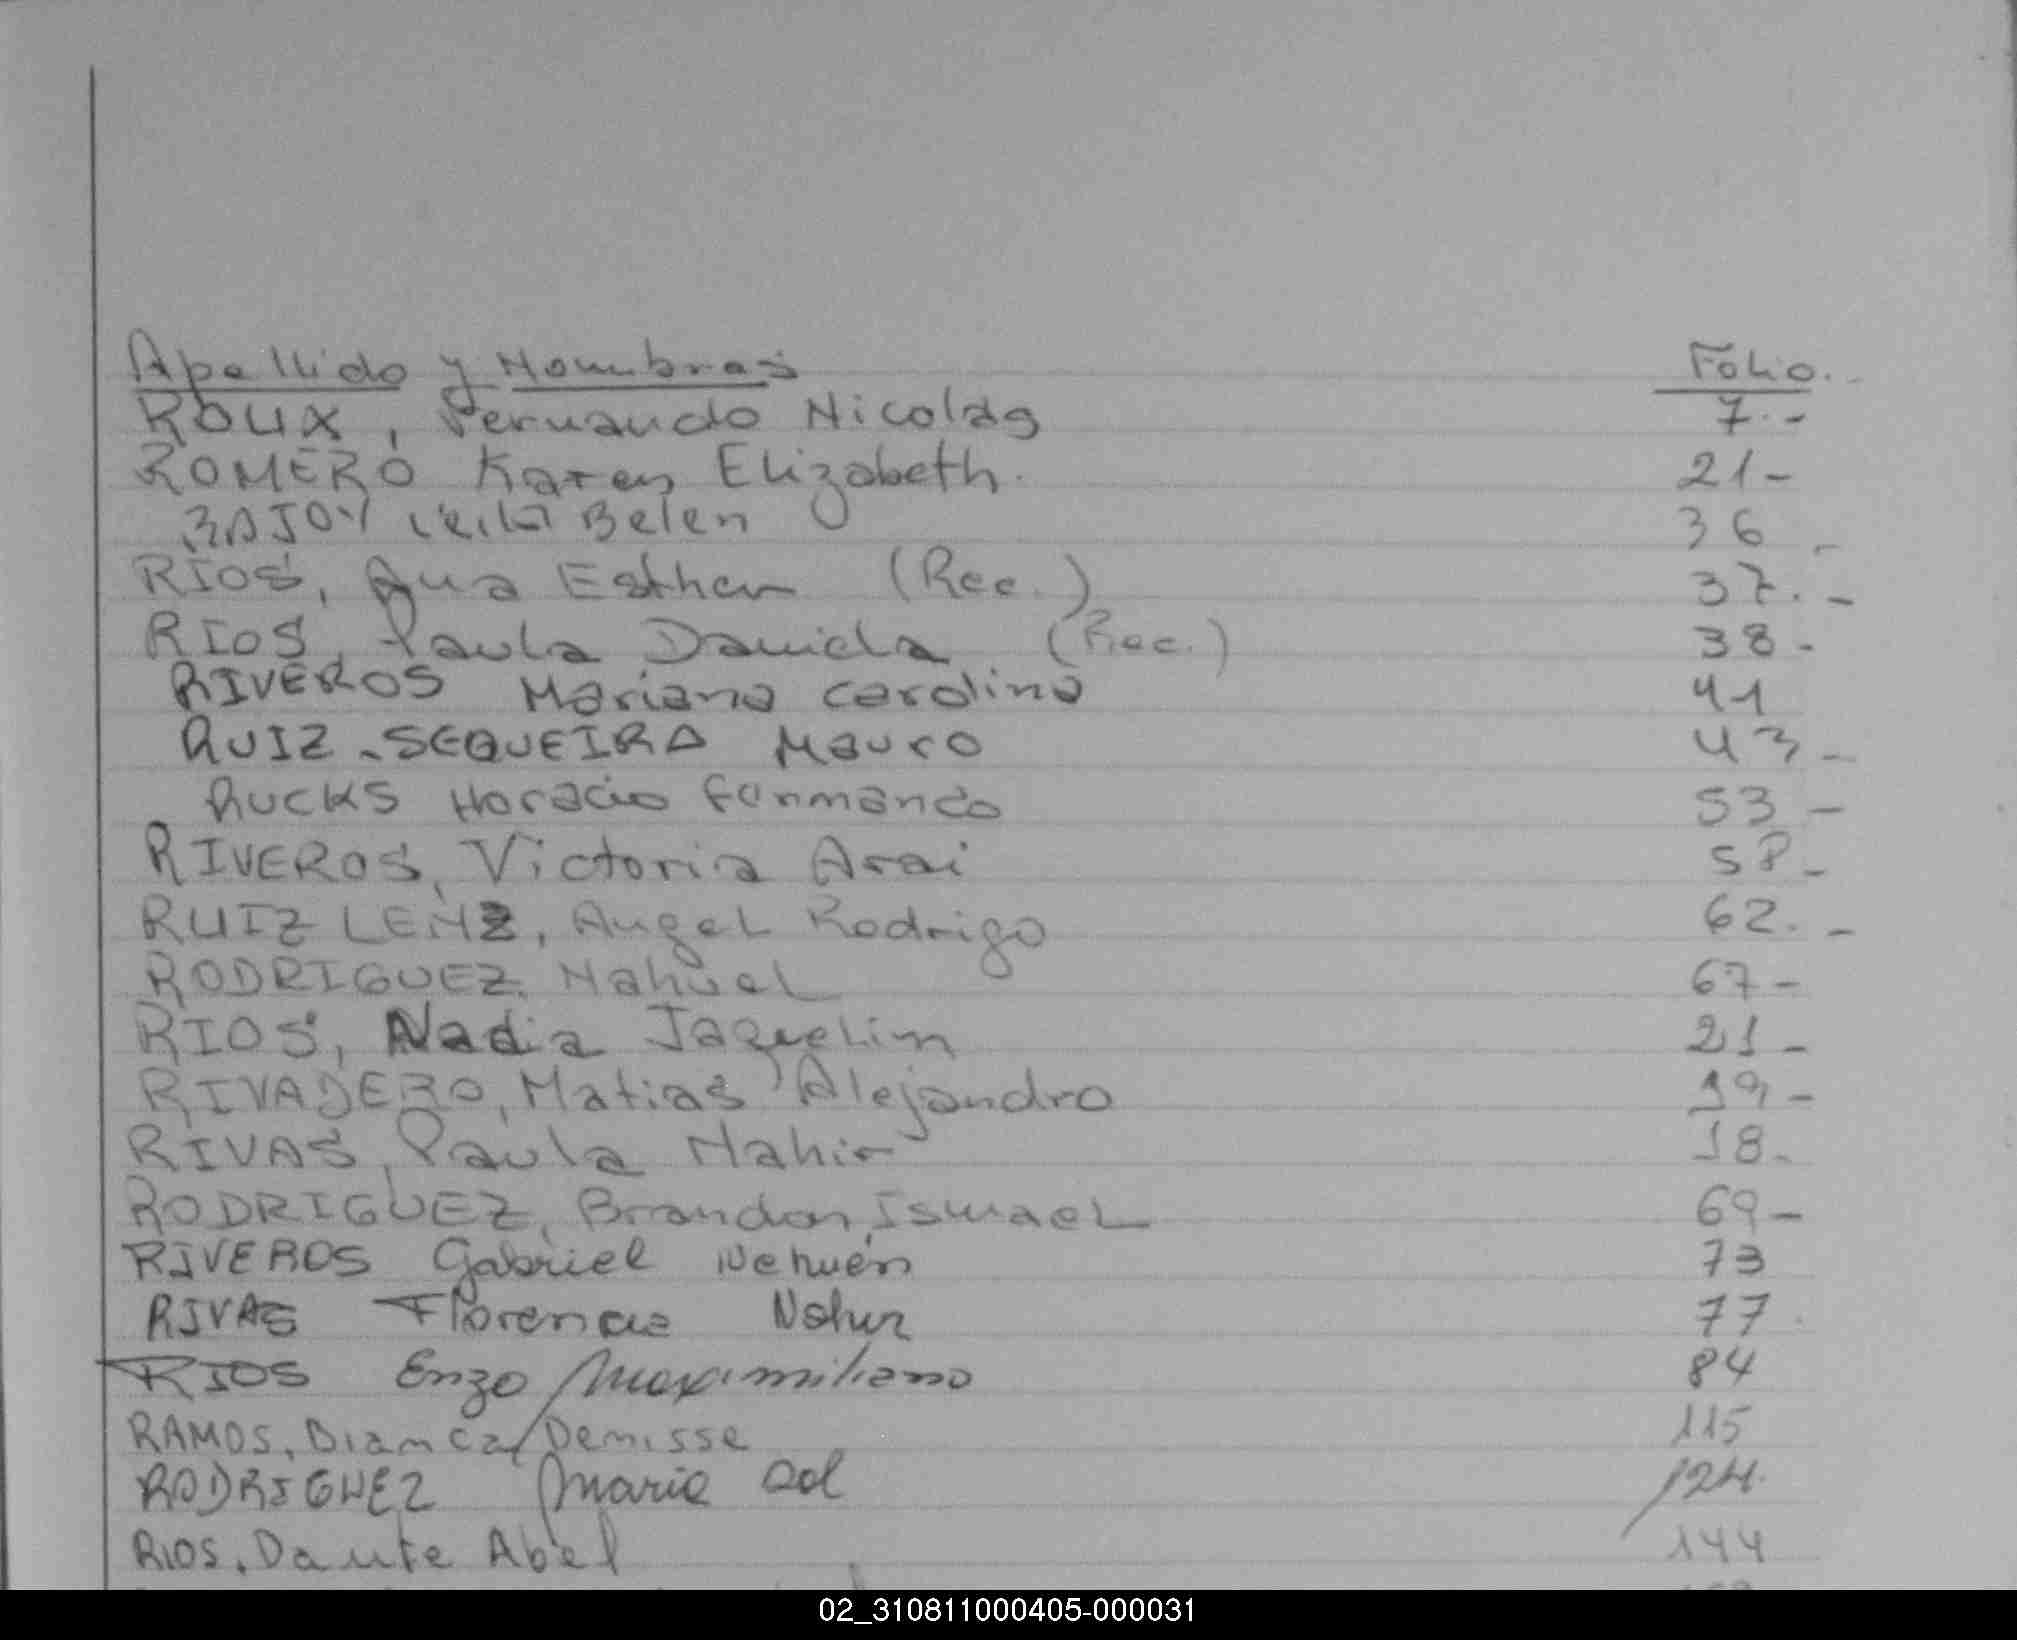 Apellido y Nombres Folio.
ROUX, Fernando Nicolás 7.-
ROMERO Karen Elizabeth. 21-
RAJOY Leila Belen 36 -
RIOS, Ana Esther (Rec.) 37.-
RIOS, Paula Daniela (Rec.) 38-
RIVEROS Mariana Carolina 41
RUIZ-SEQUEIRA Mauro 43-
RUCKS Horacio Fernando 53-
RIVEROS, Victoria Arai 58-
RUIZ LENZ, Angel Rodrigo 62.-
RODRIGUEZ. Nahuel 67-
RIOS, Nadia Jaquelin 21-
RIVADERO, Matias Alejandro 19-
RIVAS, Paula Nahir 18-
RODRIGUEZ, Brandon, Ismael 69-
RIVEROS Gabriel Nehuén 73
RIVAS Florencia 77
RIOS Enzo Maximiliano 84
RAMOS, Bianca Denisse 115
RODRIGUEZ Maria Sol 124.
RIOS, Dante Abel 144
02_310811000405-000031